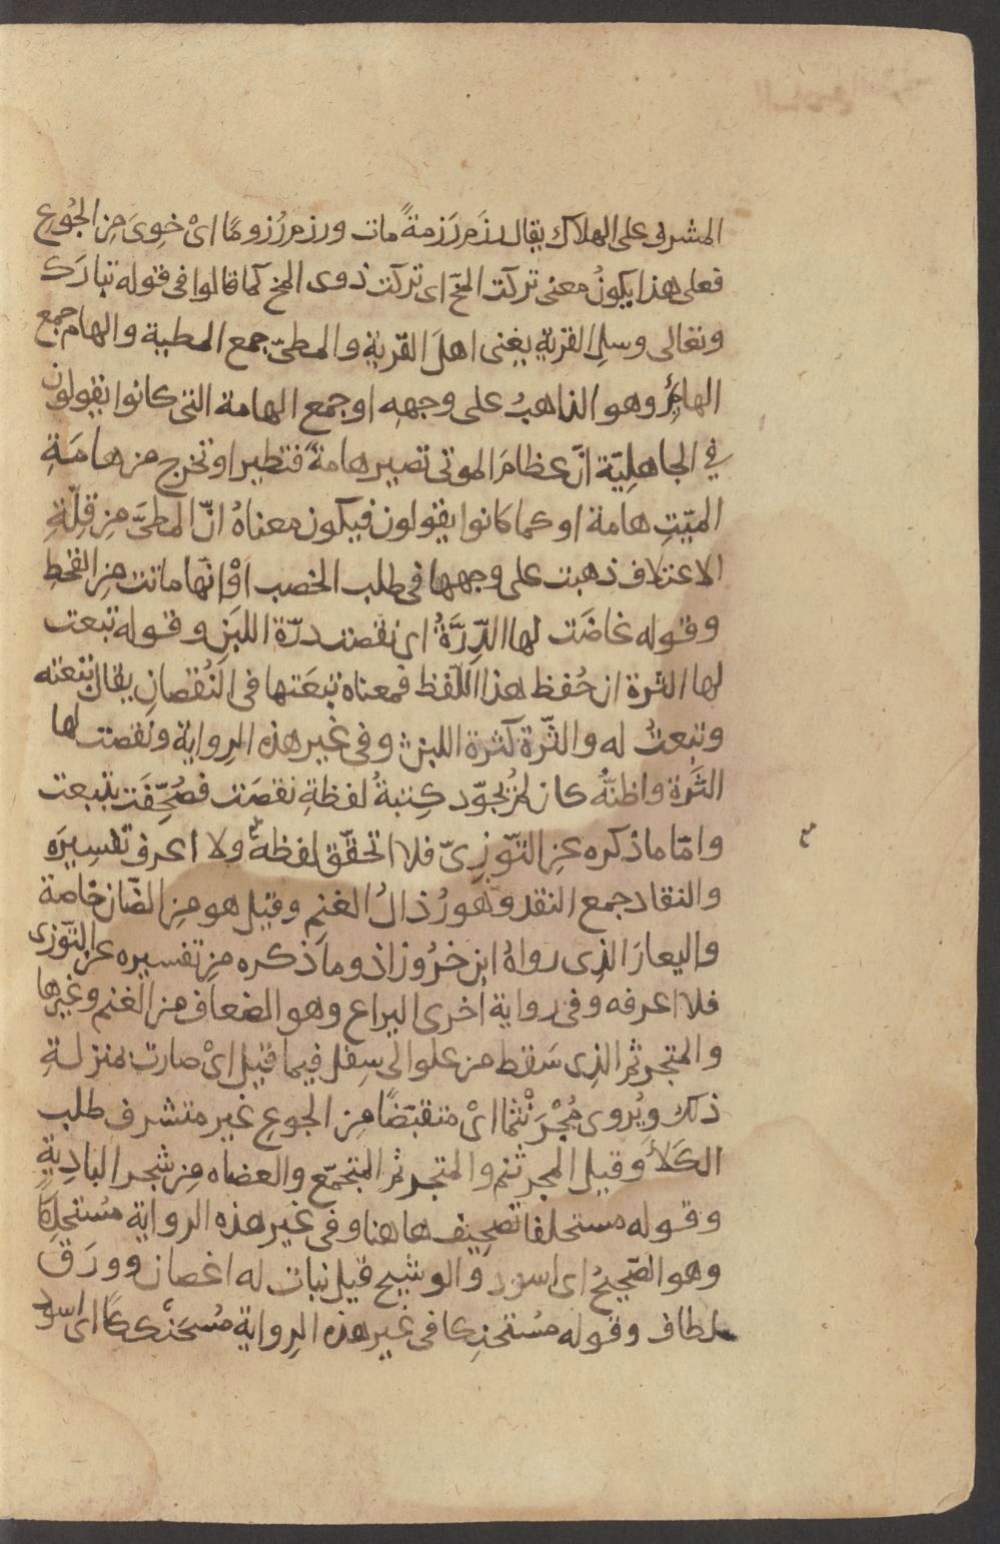 المشرف على الهلاك يقال رزَم رَزمةً مات ورزم رُزومًا اىْ خوِىَ مِن الجُوع
فعلى هذا يكونُ معنى تركت المخّ اى تركت ذوى المخ كما قالوا فى قوله تبارَك
وتعالى وسلِ القرية يعنى اهلَ القَرية والمطىّ جمع المطية والهام جمع
الهائِم وهو الذاهبُ على وجهه او جمع الهامة التى كانوا يقولون
في الجاهليّة انّ عظامَ الموتى تصير هامةً فتطير او تخرج من هامَةِ
الميّتِ هامة او كما كانوا يقولون فيكون معناهُ انّ المطىَّ مِن قِلّةِ
الاعتلاف ذهبت على وجهها فى طلب الخصب اوْ انّها ماتت مِن القحطِ
وقوله غاضَت لها الدِّرَّةُ اى نقصت درّة اللبَنِ وقوله تبعت
لها الثرة ان حُفظ هذا اللّفظ فمعناه تبعَتها فى النُقصانِ يقال تبعته
وتبِعتُ له والثّرة كثرة اللبن وفى غير هذه الرواية ونقصت لها
الثَرة واظنّهُ كان لم يُجوّد كِتبةُ لفظةِ نقصَت فصُحِّفَت بتبعت
وامّا ما ذكره عن التّوّزىّ فلا اتحقّق لفظهُ ولا اعرف تفسِيرَه
والنقاد جمع النقد وهو رُذالُ الغنمِ وقيل هو مِن الضّان خاصة
واليعارَ الذى رواهُ ابن خرُوزاذ وما ذكره مِن تفسيره عن التوّزى
فلا اعرفه وفى رواية اخرى اليراع وهو الضعاف من الغنم وغيرها
والمتجرثم الذى سَقط من علو الى سِفل فيما قيل اىْ صارت بمنزلةِ
ذلك ويُروى مُجْرَنْثمًا اىْ متقبّضًا مِن الجوعِ غير متشرف طلب
الكَلأ وقيل المجرنثم والمتجرثم المتجمّع والعضاه مِن شجر البادِيةِ
وقوله مستحلفا تصحِيف هاهنا وفى غير هذه الرواية مُستحلِكًا
وهو الصّحيحُ اى اسود والوشيج قيل نبات له اغصان وورَق
لطاف وقوله مُستحنِكا فى غير هذه الرِواية مُسحَنْكِكًا اى اسود